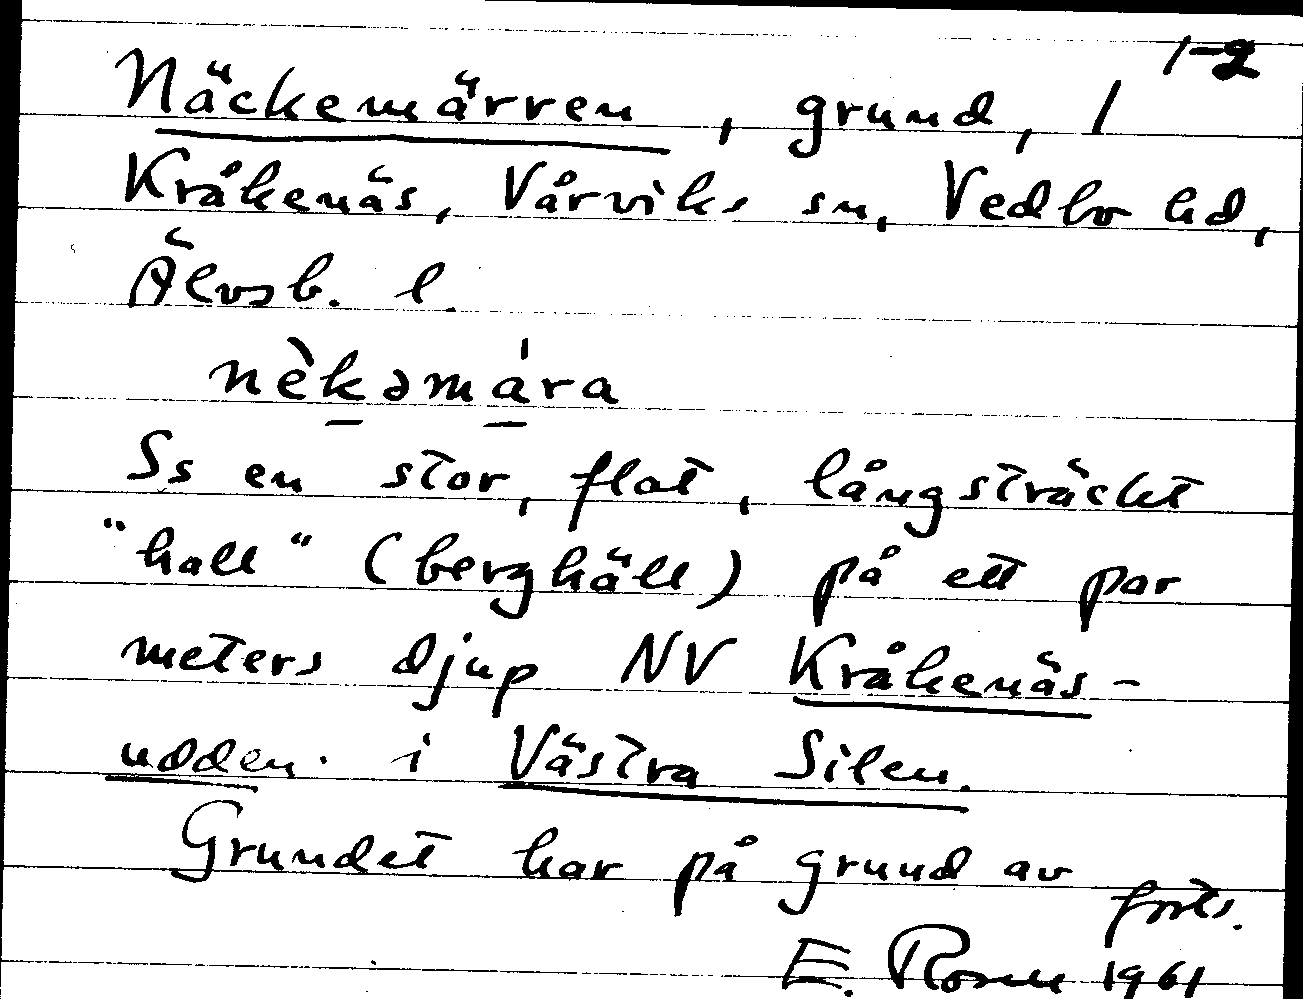 1-2
Näckemärren, grund, /
Kråkenäs, Vårviks sn, Vedbo hd,
Älvsb. l.
nèkəmára
Ss en stor, flat, långsträckt
"hall" (berghäll) på ett par
meters djup NV Kråkenäs-
udden i Västra Silen.
Grundet har på grund av
forts.
E. Rosén 1961